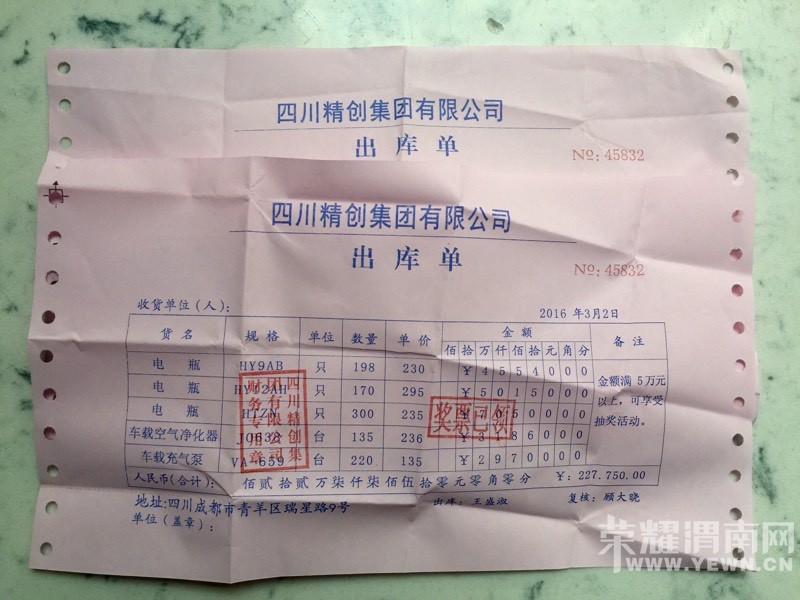 四川精创集团有限公司
出库单
№: 45832
四川精创集团有限公司
出库单
№: 45832
收货单位(人):
2016 年3月2日
货名 规格 单位 数量 单价 金额 备注
佰 拾 万 仟 佰 拾 元 角 分
电瓶 HY9AB 只 198 230 ¥ 4 5 5 4 0 0 0
电瓶 HY12AH 只 170 295 ¥ 5 0 1 5 0 0 0
电瓶 H7ZN 只 300 235 ¥ 7 0 5 0 0 0 0
车载空气净化器 J0638 台 135 236 ¥ 3 1 8 6 0 0 0
车载充气泵 VA-659 台 220 135 ¥ 2 9 7 0 0 0 0
金额满 5万元
以上,可享受
抽奖活动。
人民币(合计): 佰贰拾贰万柒仟柒佰伍拾零元零角零分 ¥: 227.750.00
地址:四川成都市青羊区瑞星路9号 出库: 王盛淑 复核: 顾大晓
单位(盖章):
四川精创集
团有限公司
财务专用章
荣耀渭南网
WWW.YEWN.CN